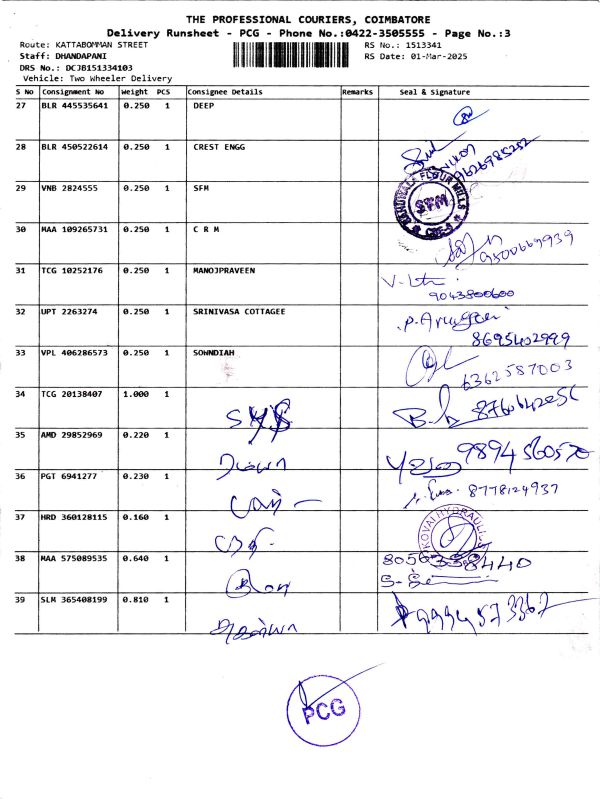 THE PROFESSIONAL COURIERS, COIMBATORE
Delivery Runsheet - PCG - Phone No.:0422-3505555 - Page No.:3
Route: KATTABOMMAN STREET RS No.: 1513341
Staff: DHANDAPANI RS Date: 01-Mar-2025
DRS No.: DCJB151334103
Vehicle: Two Wheeler Delivery
S No Consignment No Weight PCS Consignee Details Remarks Seal & signature
27 BLR 445535641 0.250 1 DEEP
28 BLR 450522614 0.250 1 CREST ENGG 9626985252
29 VNB 2824555 0.250 1 SFM FLOUR MILLS SFM
30 MAA 109265731 0.250 1 C R M 9500669939
31 TCG 10252176 0.250 1 MANOJPRAVEEN 9043800600
32 UPT 2263274 0.250 1 SRINIVASA COTTAGEE 8695402999
33 VPL 406286573 0.250 1 SOWNDIAH 6362587003
34 TCG 20138407 1.000 1
35 AMD 29852969 0.220 1 ரம்யா 9894560570
36 PGT 6941277 0.230 1 8778124937
37 HRD 360128115 0.160 1 KOVAI HYDRAULI
38 MAA 575089535 0.640 1 8056358440
39 SLM 365408199 0.810 1 9994573367
PCG